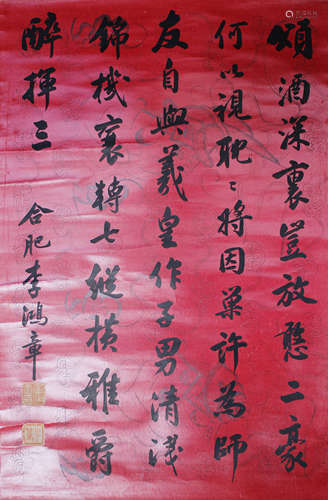 頌酒深裏豈放憨二豪
何以視耽〻將因巢許為師
友自與羲皇作子男清淺
錦機裹轉七縱橫雅爵
醉揮三
合肥李鴻章